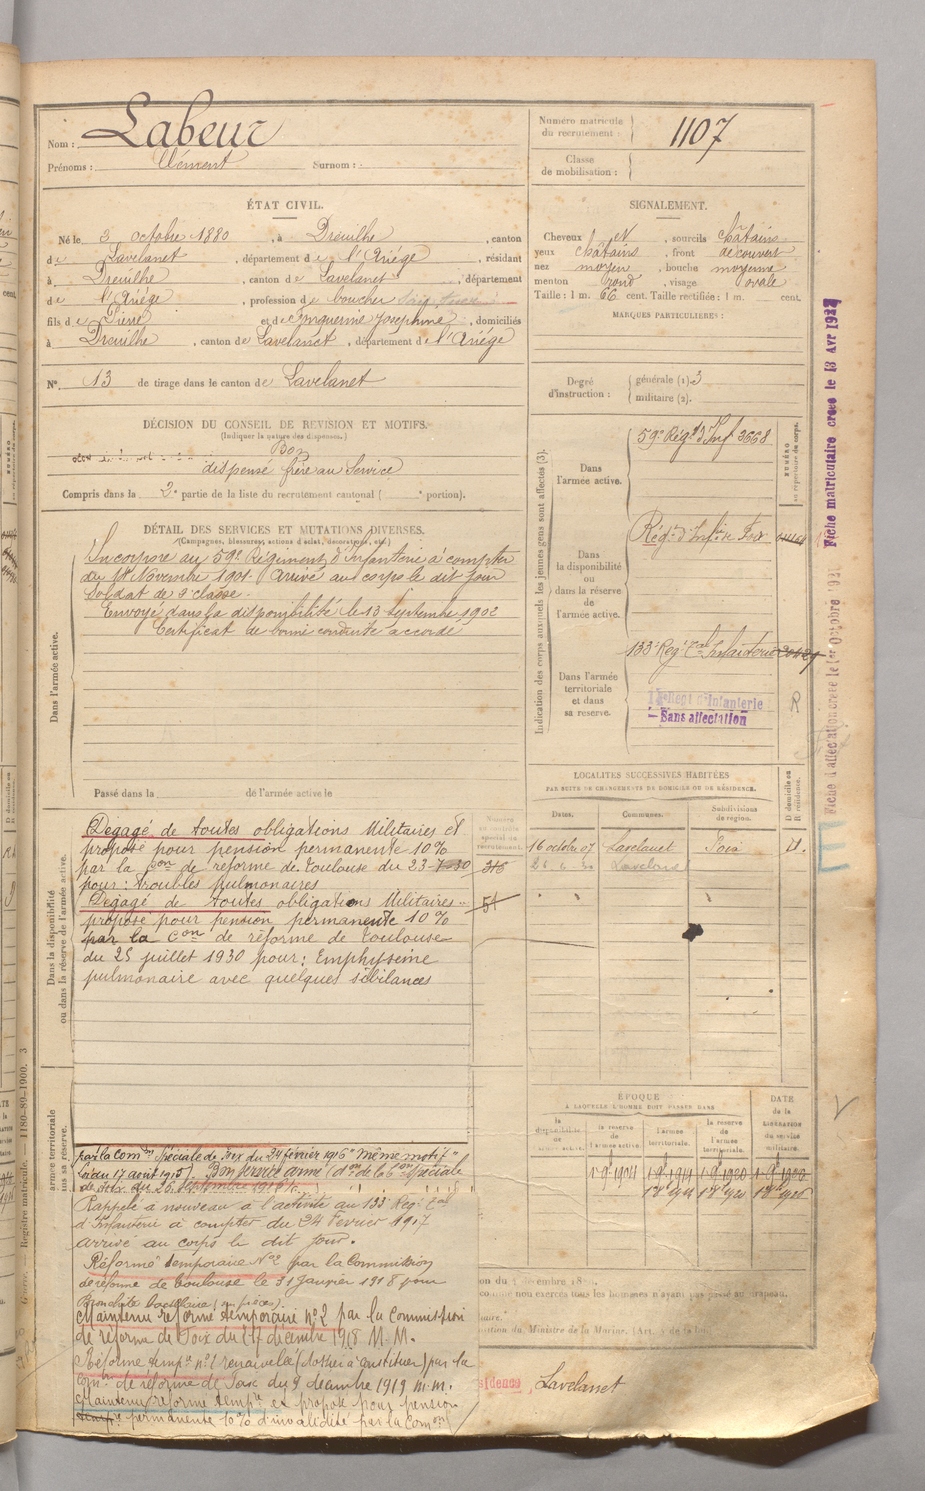 Nom : Labeur
Prénoms : Clément Surnom :
Numéro matricule du recrutement : 1107
Classe de mobilisation :
ÉTAT CIVIL.
Né le 3 octobre 1880, à Dreuilhe, canton
de Lavelanet, département de l'Ariège, résidant
à Dreuilhe, canton de Lavelanet, département
de l'Ariège, profession de boucher
fils de Pierre et de Josephine, domiciliés
à Dreuilhe, canton de Lavelanet, département de l'Ariège
N° 13 de tirage dans le canton de Lavelanet
SIGNALEMENT.
Cheveux et, sourcils châtains
yeux châtains, front découvert
nez moyen, bouche moyenne
menton rond, visage ovale
Taille : 1 m. 66 cent. Taille rectifiée : 1 m. cent.
MARQUES PARTICULIÈRES :
Degré d'instruction : générale (1) 3
militaire (2).
DÉCISION DU CONSEIL DE REVISION ET MOTIFS.
(Indiquer la nature des dispenses.)
Bon
dispensé frère au Service
Compris dans la 2e partie de la liste du recrutement cantonal ( portion).
DÉTAIL DES SERVICES ET MUTATIONS DIVERSES.
(Campagnes, blessures, actions d'éclat, décorations, etc.)
Dans l'armée active.
Incorporé au 59e Régiment d'Infanterie à compter
du Novembre 1901. Arrivé au corps le dit jour
Soldat de 2e classe.
Envoyé dans la disponibilité le 13 Septembre 1902
Certificat de bonne conduite accordé
Passé dans la de l'armée active le
Indication des corps auxquels les jeunes gens sont affectés (3).
NUMÉRO au répertoire du corps.
Dans l'armée active.
59e Régt d'Inf 3668
Dans la disponibilité ou dans la réserve de l'armée active.
Régt d'Infie de Foix
Dans l'armée territoriale et dans sa réserve.
133 Regt Tal Infanterie
d'Infanterie
Sans affectation
R
Fiche matriculaire creee le 13 Avr 1927
Fiche d'affectation creee le 1er Octobre
LOCALITÉS SUCCESSIVES HABITÉES
PAR SUITE DE CHANGEMENTS DE DOMICILE OU DE RÉSIDENCE.
Dates. Communes. Subdivisions de région. D domicile ou R résidence.
16 octobre 07 Lavelanet Foix D.
Lavelanet
Dans la disponibilité ou dans la réserve de l'armée active.
Dégagé de toutes obligations Militaires et
proposé pour pension permanente 10%
par la Con de réforme de Toulouse du 23-7-30
pour : troubles pulmonaires
Dégagé de toutes obligations Militaires
proposé pour pension permanente 10%
par la Con de réforme de Toulouse
du 25 juillet 1930 pour : Emphysème
pulmonaire avec quelques sibilances
316
51
ÉPOQUE
À LAQUELLE L'HOMME DOIT PASSER DANS
la disponibilité de l'armée active.
la réserve de l'armée active.
l'armée territoriale.
la réserve de l'armée territoriale.
DATE de la LIBÉRATION du service militaire.
1-9-1904 1-9-1914 1-9-1920
par la Comon Spéciale de Foix du 24 février 1916 "même motif"
(du 17 août 1915) Bon service armé Don de la Con Spéciale
de Foix du 26 Septembre 1916
Rappelé à nouveau à l'activité au 133 Regt Tal
d'Infanterie à compter du 24 Fevrier 1917
arrivé au corps le dit jour.
Réformé temporaire No 2 par la Commission
de réforme de Toulouse le 31 Janvier 1918 pour
Bronchite bacillaire
Maintenu réformé temporaire n°2 par la Commission
de réforme de Foix du 17 décembre 1918 M.M.
Réforme tempre n°1 renouvelée (dossier à constituer) par la
Comon de réforme de Foix du 9 décembre 1919 m.m.
Maintenu réforme tempre et proposé pour pension
permanente 10% d'invalidité par la Comon
Lavelanet